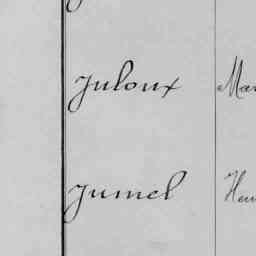 Juloux Mar
Jumel Hen